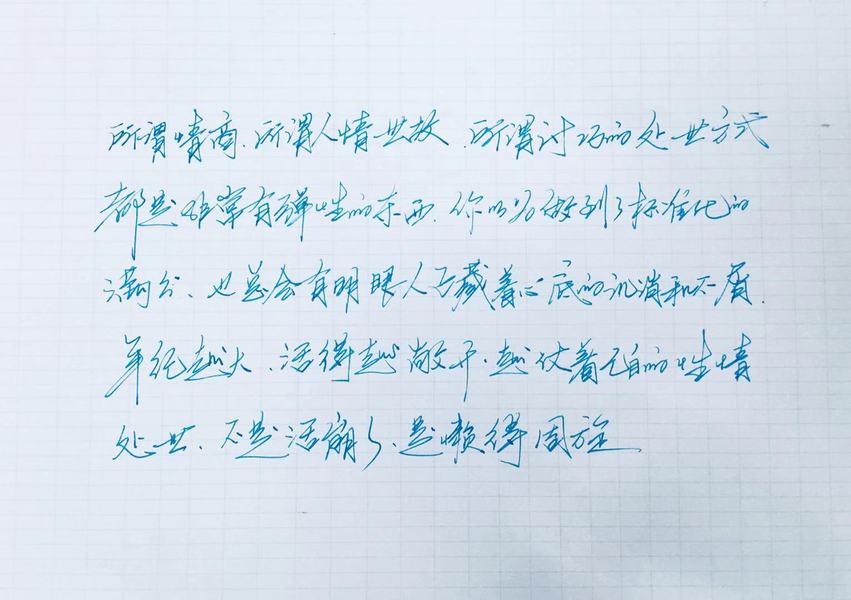 所谓情商、所谓人情世故、所谓讨巧的处世方式
都是非常有弹性的东西、你以为做到了标准化的
满分、也总会有明眼人暗藏着心底的讥消和不屑、
年纪越大、活得越敞开、越仗着自的性情
处世、不是活崩了、是懒得周旋